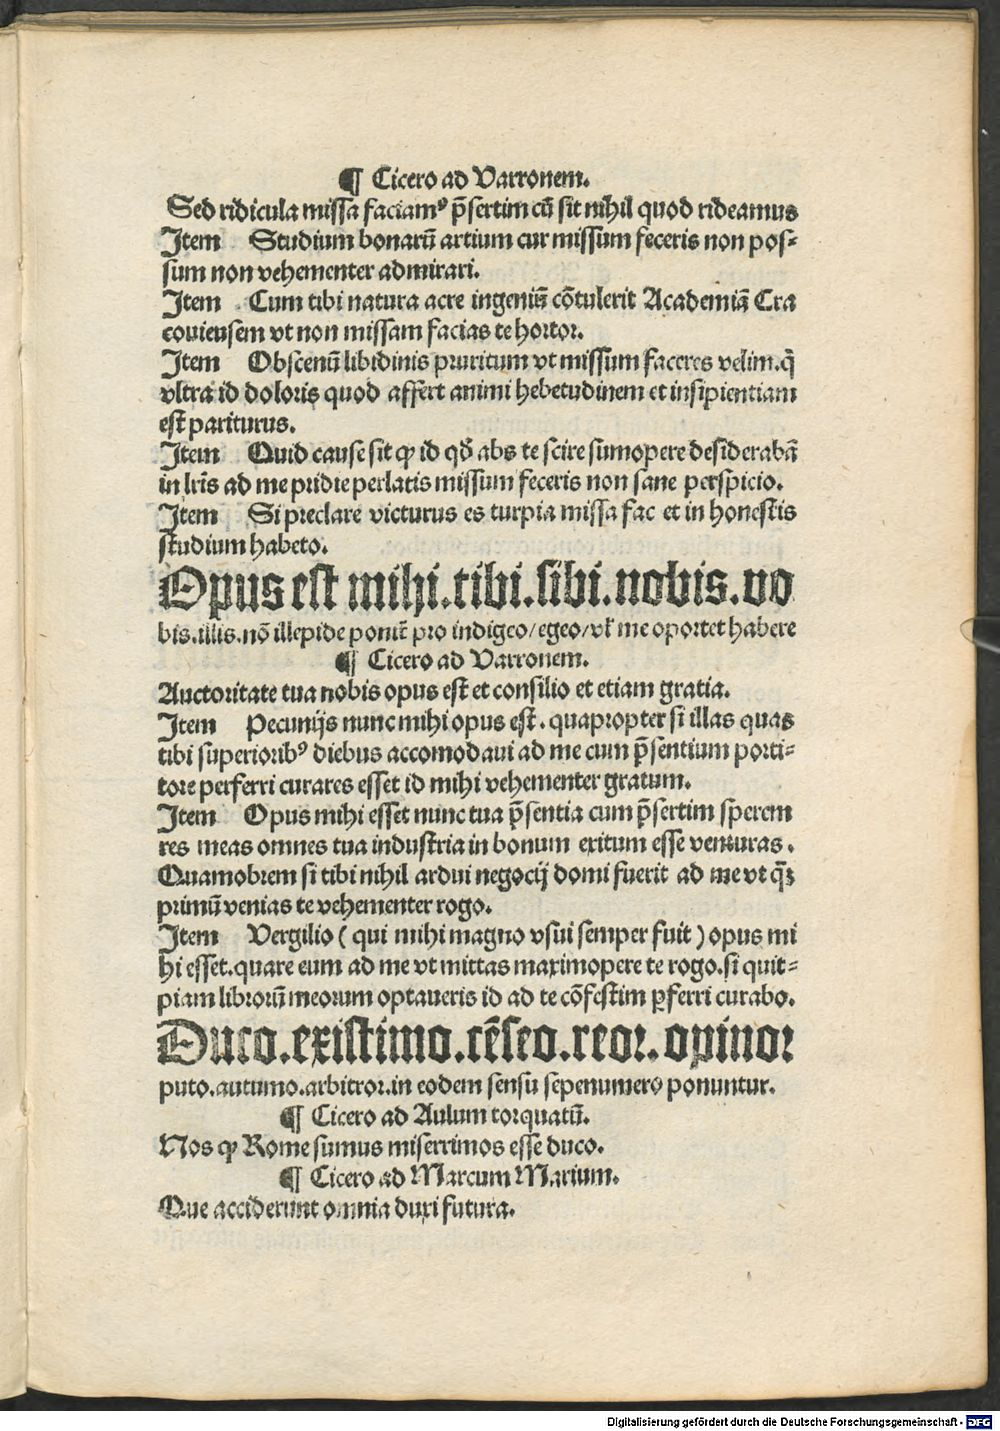 ¶ Cicero ad Varronem.
Sed ridicula missa faciamꝰ p̄sertim cū sit nihil quod rideamus
Item Studium bonarū artium cur missum feceris non pos⸗
sum non vehementer admirari.
Item Cum tibi natura acre ingeniū cōtulerit Academiā Cra
couieusem vt non missam facias te hortor.
Item Obscenū libidinis pruritum vt missum faceres velim. q̄
vltra id doloris quod affert animi hebetudinem et insipientiam
est pariturus.
Item Quid cause sit ꝙ id qđ abs te scire sumopere desiderabā
in lr̄is ad me pridie perlatis missum feceris non sane perspicio.
Item Si preclare victurus es turpia missa fac et in honestis
studium habeto.
Opus est mihi. tibi. sibi. nobis. vo
bis. illis. nō illepide ponūt̄ pro indigeo/egeo/vł me oportet habere
¶ Cicero ad Varronem.
Auctoritate tua nobis opus est et consilio et etiam gratia.
Item Pecunijs nunc mihi opus est. quapropter si illas quas
tibi superioribꝰ diebus accomodaui ad me cum p̄sentium porti⸗
tore perferri curares esset id mihi vehementer gratum.
Item Opus mihi esset nunc tua p̄sentia cum p̄sertim sperem
res meas omnes tua industria in bonum exitum esse venturas.
Quamobrem si tibi nihil ardui negocij domi fuerit ad me vt q̄ꝫ
primū venias te vehementer rogo.
Item Vergilio (qui mihi magno vsui semper fuit) opus mi
hi esset. quare eum ad me vt mittas maximopere te rogo. si quit⸗
piam librorū meorum optaueris id ad te cōfestim ꝑferri curabo.
Duco. existimo. cēseo. reor. opinor
puto. autumo. arbitror. in eodem sensu sepenumero ponuntur.
¶ Cicero ad Aulum torquatū.
Nos ꝙ Rome sumus miserrimos esse duco.
¶ Cicero ad Marcum Marium.
Que acciderunt omnia duxi futura.
Digitalisierung gefördert durch die Deutsche Forschungsgemeinschaft - DFG